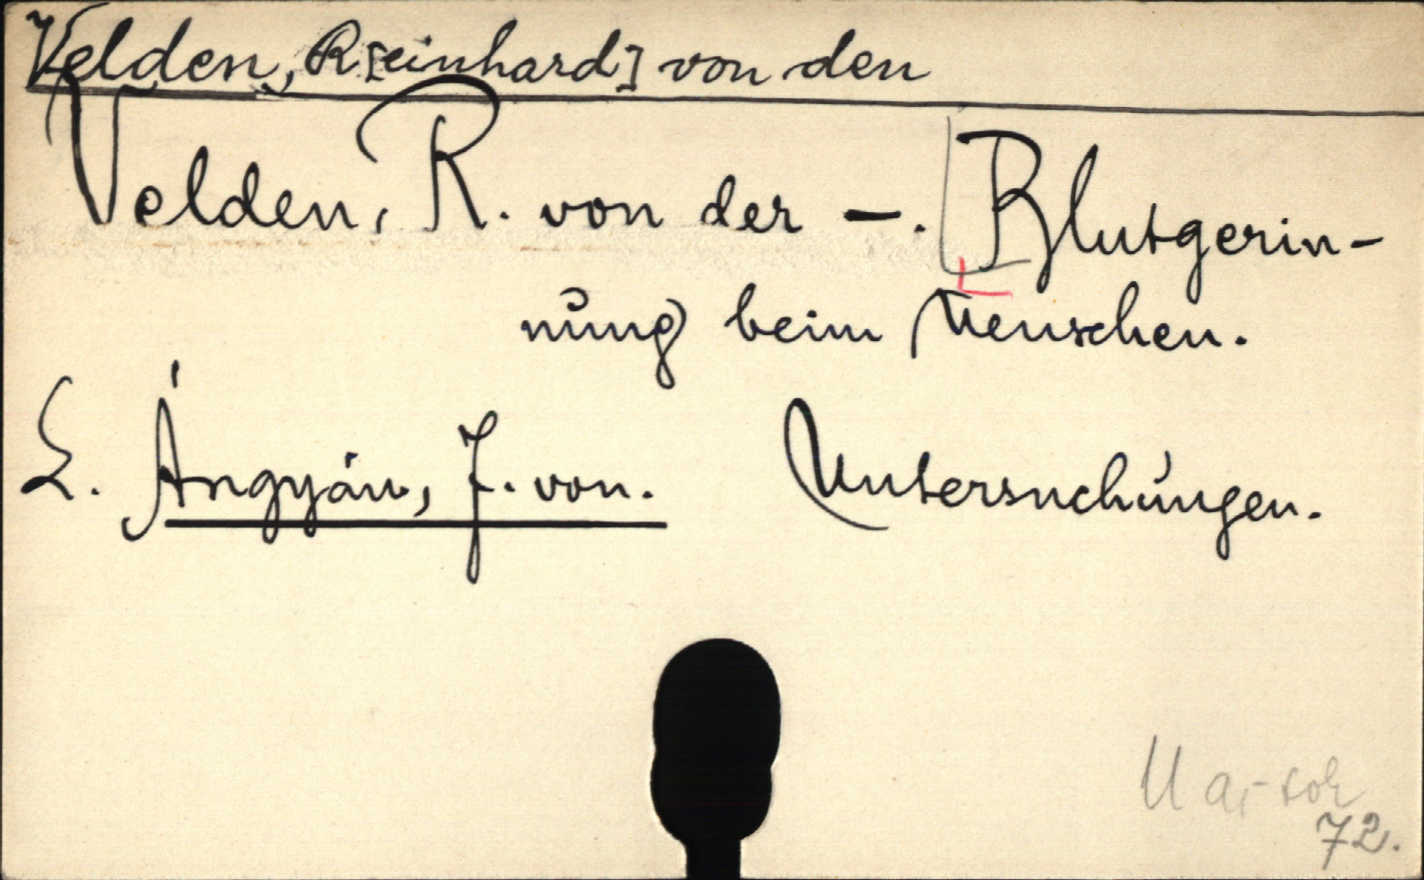 Velden, R[einhard] von den
Velden, R. von der —. Blutgerin-
nung beim Menschen.
L. Ángyán, J. von. Untersuchungen.
72.